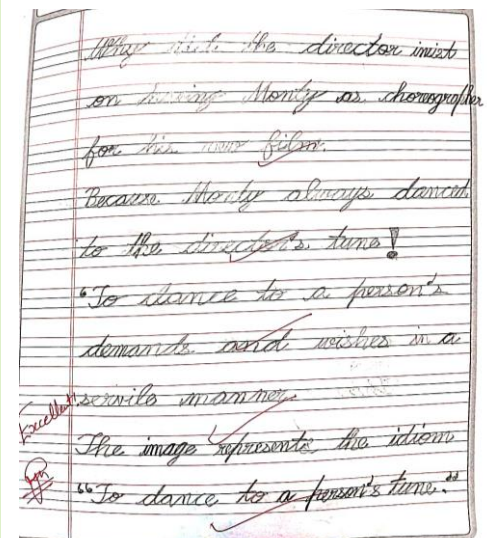 Why did the director inist
on having Monty as choreographer
for his new film.
Because Monty always danced
to the director's tune!
"To dance to a person's
demands and wishes in a
servile manner.
Excellent!
The image represents, the idiom
"To dance to a person's tune."